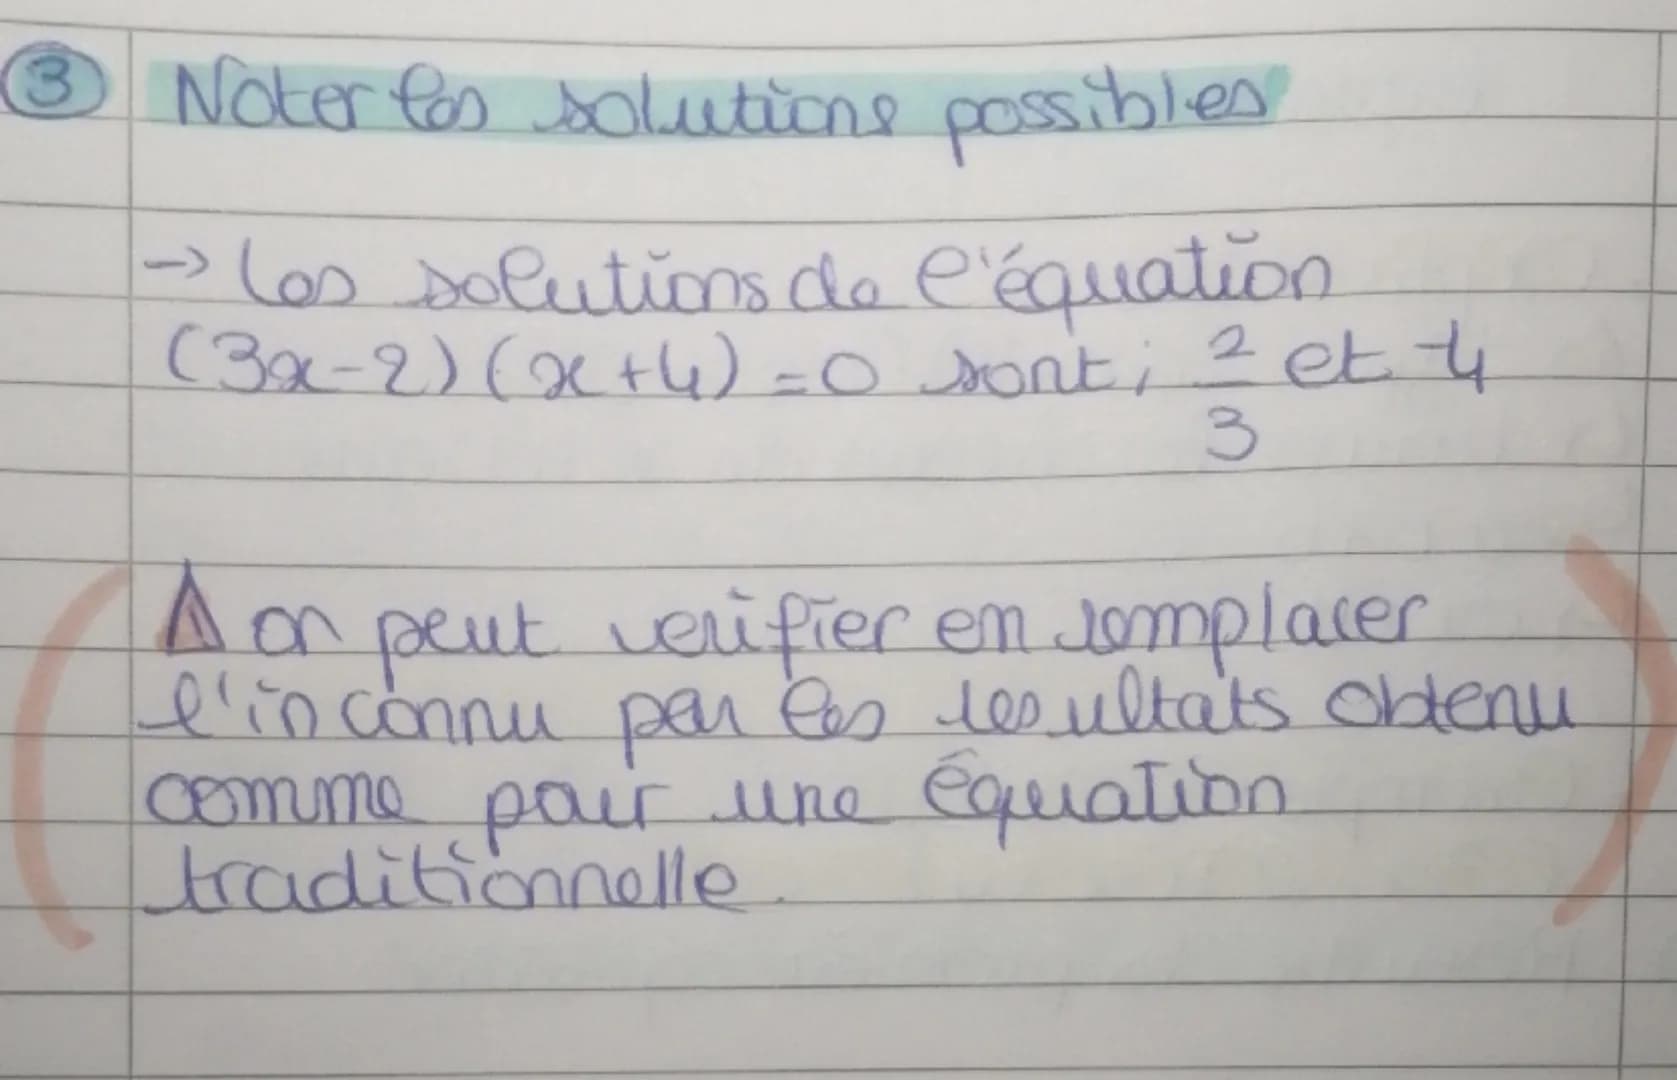 3 Noter les solutions possibles
→ Les solutions de l'équation
(3x-2)(x+4)=0 sont; 2/3 et -4
⚠ on peut verifier en remplacer
l'inconnu par les resultats obtenu
comme pour une équation
traditionnelle.